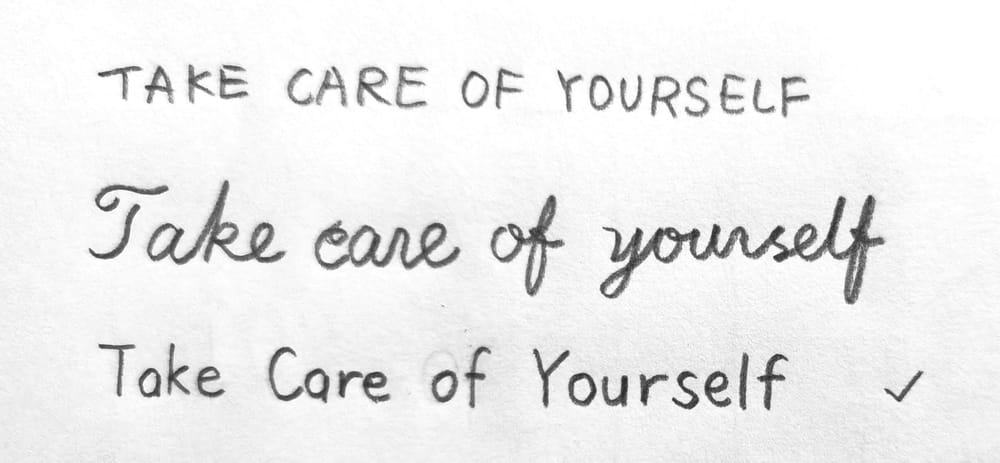 TAKE CARE OF YOURSELF
Take care of yourself
Take Care of Yourself ✓